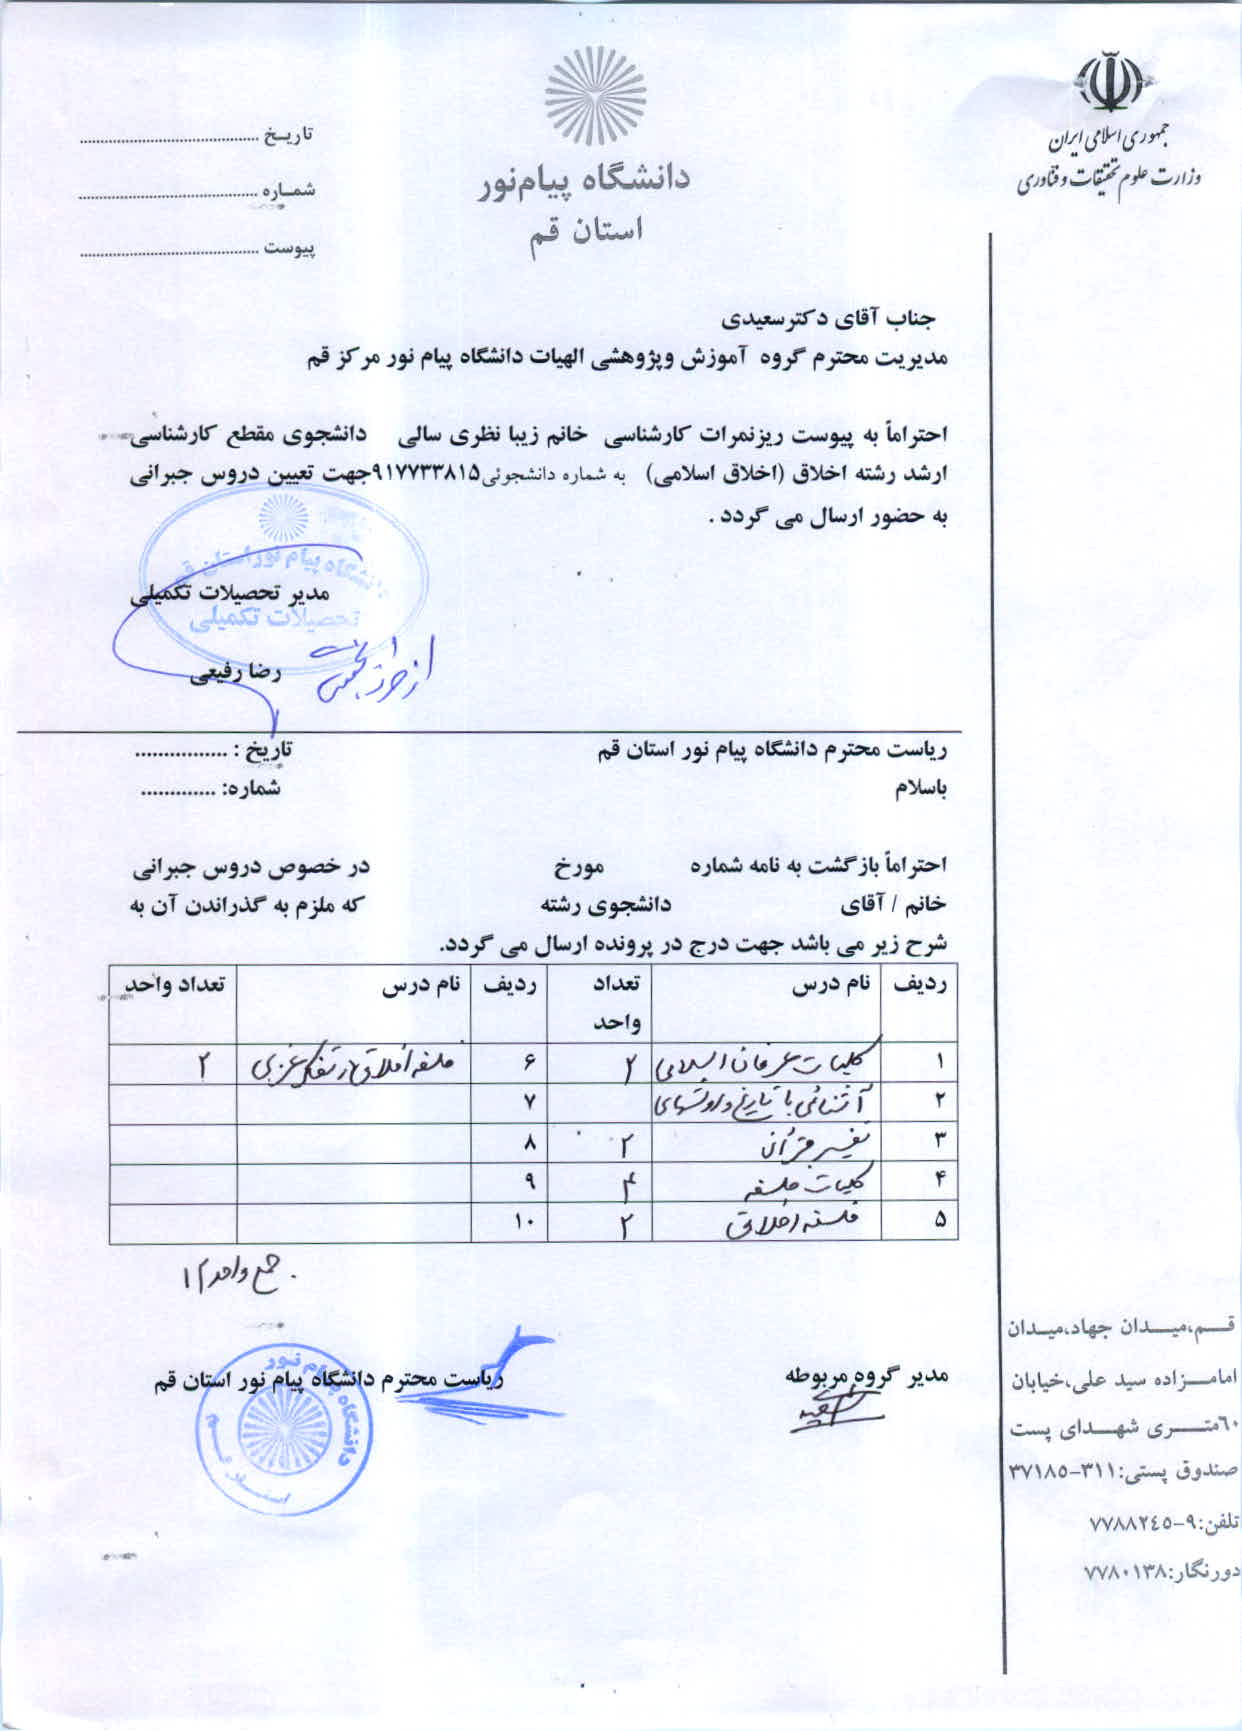 جمهوری اسلامی ایران
وزارت علوم تحقیقات و فناوری
دانشگاه پیام‌نور
استان قم
تاریـخ ..........................................
شمـاره ..........................................
پیوست ..........................................
جناب آقای دکترسعیدی
مدیریت محترم گروه آموزش وپژوهشی الهیات دانشگاه پیام نور مرکز قم
احتراماً به پیوست ریزنمرات کارشناسی خانم زیبا نظری سالی دانشجوی مقطع کارشناسی
ارشد رشته اخلاق (اخلاق اسلامی) به شماره دانشجوئی۹۱۷۷۳۳۸۱۵جهت تعیین دروس جبرانی
به حضور ارسال می گردد .
دانشگاه پیام نور استان قم
مدیر تحصیلات تکمیلی
تحصیلات تکمیلی
رضا رفیعی
ریاست محترم دانشگاه پیام نور استان قم تاریخ : ................
باسلام شماره: .............
احتراماً بازگشت به نامه شماره مورخ در خصوص دروس جبرانی
خانم / آقای دانشجوی رشته که ملزم به گذراندن آن به
شرح زیر می باشد جهت درج در پرونده ارسال می گردد.
ردیف نام درس تعداد واحد ردیف نام درس تعداد واحد
۱ کلیات عرفان اسلامی ۲ ۶ فلسفه اخلاق در تفکر غربی ۲
۲ آشنائی با تاریخ و ۷
۳ تفسیر قرآن ۲ ۸
۴ کلیات فلسفه ۴ ۹
۵ فلسفه اخلاق ۲ ۱۰
جمع واحد
مدیر گروه مربوطه ریاست محترم دانشگاه پیام نور استان قم
دانشگاه پیام نور
قــم،میـــدان جهاد،میـدان
امامــزاده سید علی،خیابان
٦٠متــــری شهــدای پست
صندوق پستی:٣١١-٣٧١٨٥
تلفن:٩-٧٧٨٨٢٤٥
دورنگار:٧٧٨٠١٣٨